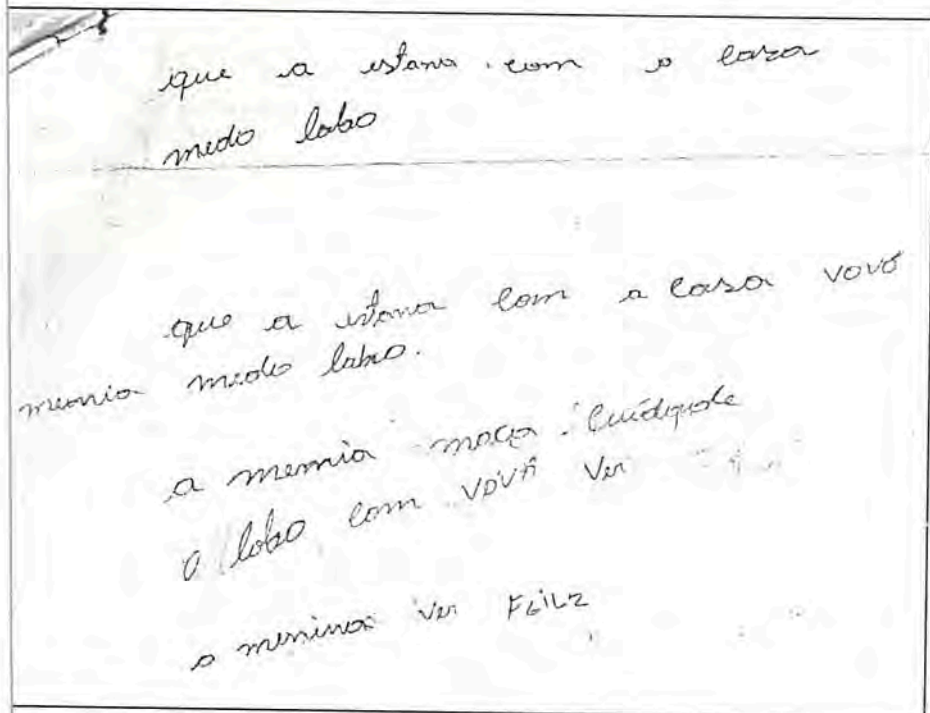 que a estava com o casa
medo lobo
que a estava com a casa vovó
menia medo lobo.
a memia moça
o lobo com vovó ver
a menina ver FEiLz